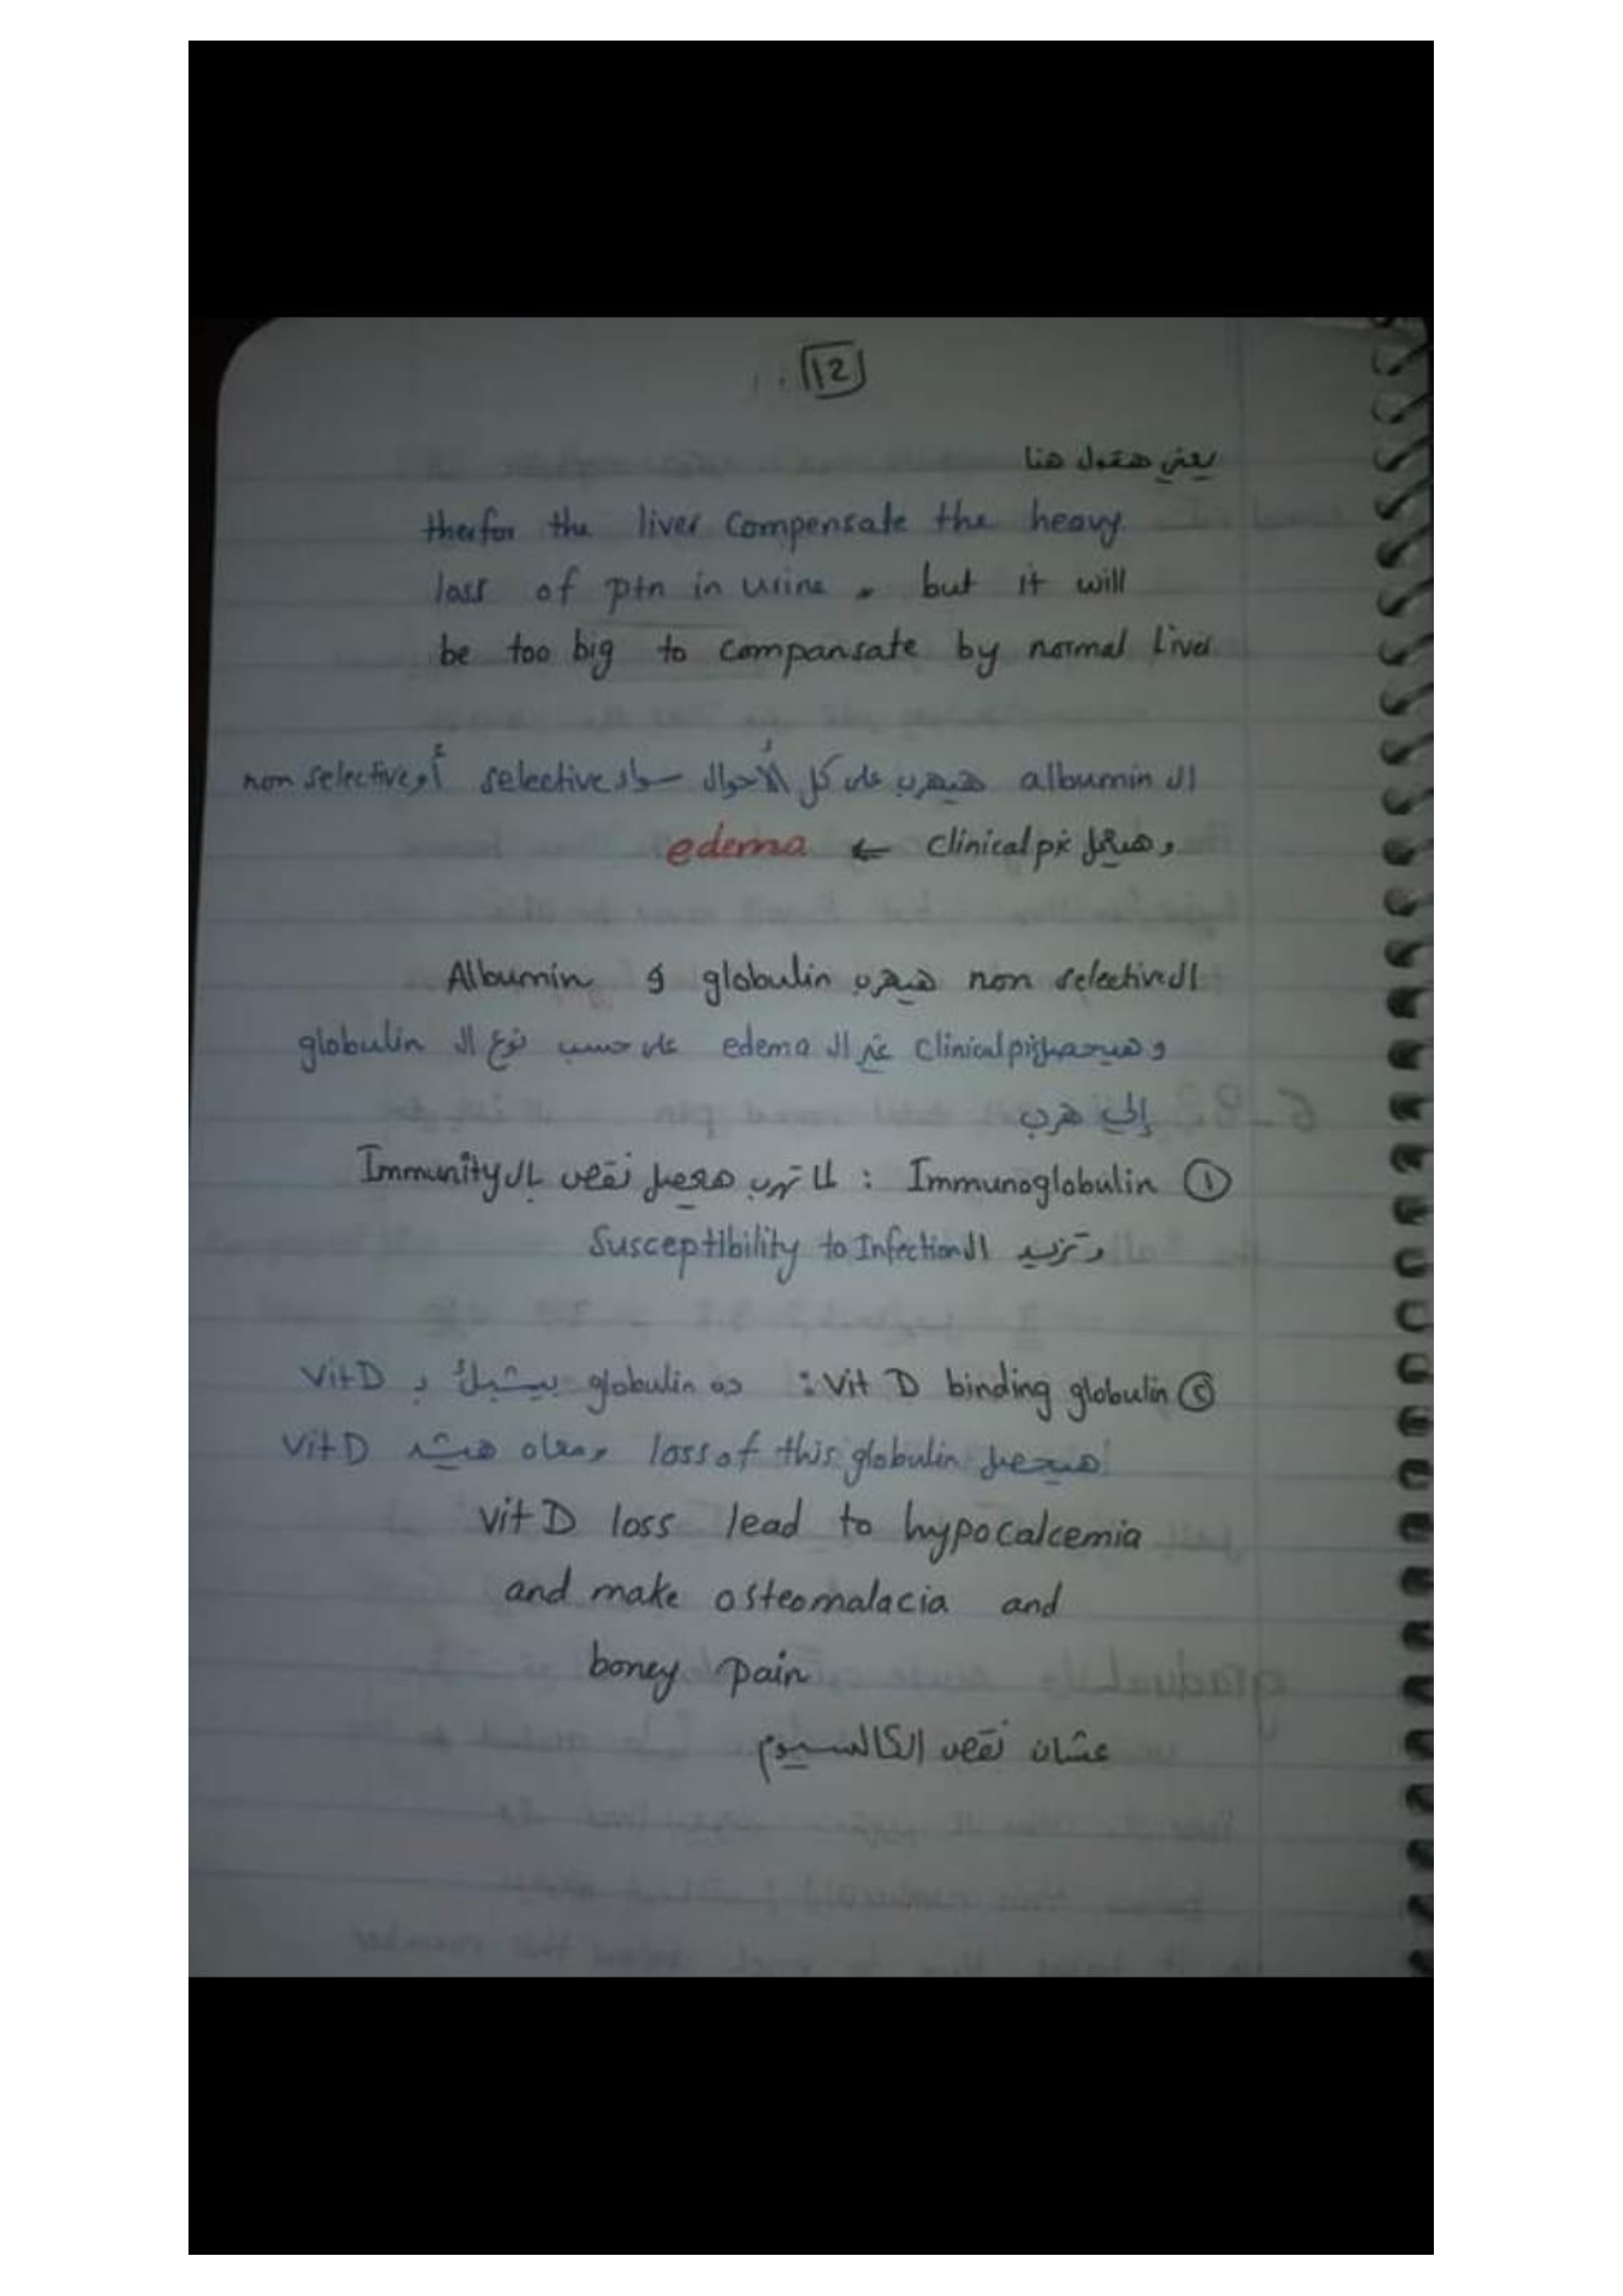 12
يعني هنقول هنا
therfor the liver compensate the heavy
loss of ptn in urine, but it will
be too big to compansate by normal liver
ال albumin هيهرب على كل الأحوال سواء selective أو non selective
وهيعمل clinical pic ← edema
ال non selective هيهرب globulin و Albumin
وهيحصل clinical pic غير ال edema على حسب نوع ال globulin
إلي هرب
① Immunoglobulin : لما تهرب هيحصل نقص بال Immunity
وتزيد ال Susceptibility to Infection
② Vit D binding globulin : ده globulin بيشبك ب Vit D
هيحصل loss of this globulin ومعاه هيشد Vit D
vit D loss lead to hypocalcemia
and make osteomalacia and
boney pain
عشان نقص الكالسيوم